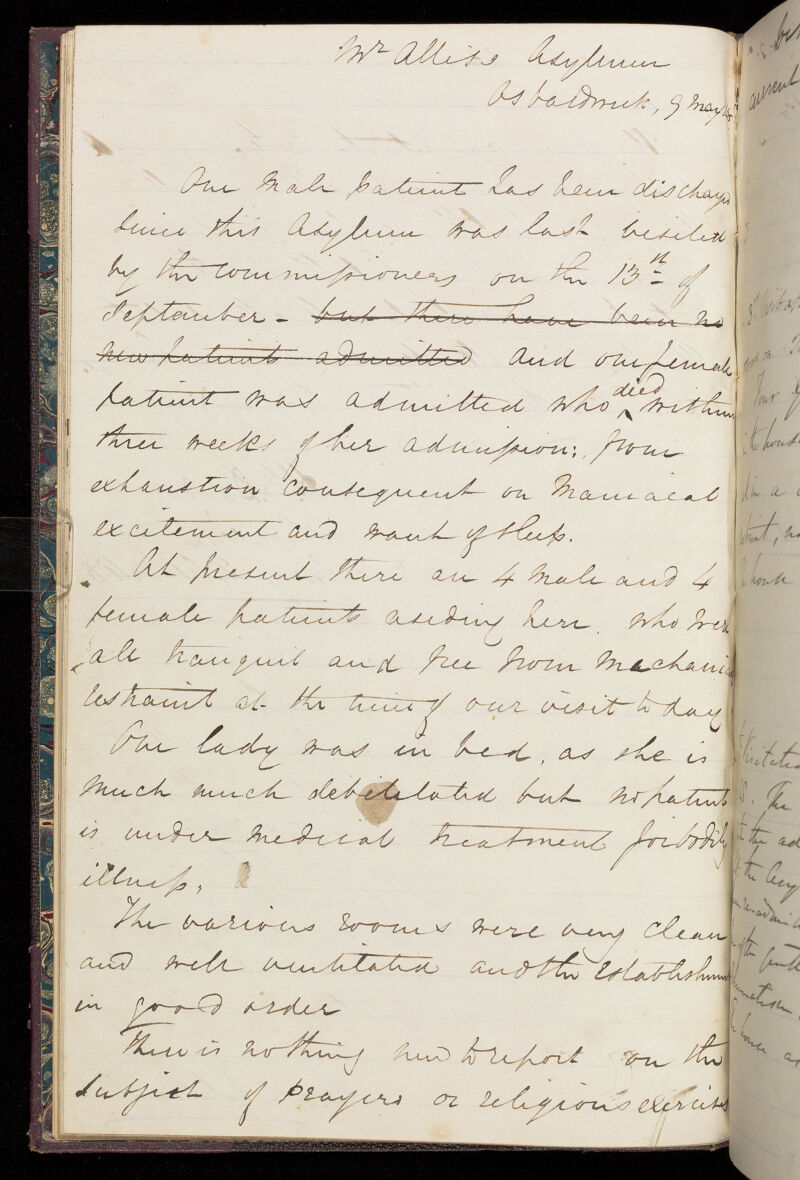 Mr Allis's Asylum
Osbaldwick, 9 May
One Male patient has been discharged
since this Asylum was last visited
by the Commissioners on the 13th of
September - but there have been no
new patient admitted and one female
patient was admitted who died within
three weeks of her admission; from
exhaustion consequent on Maniacal
excitement and want of sleep.
At present there are 4 Male and 4
female patients residing here. who were
all tranquil and free from Mechanical
restraint at the time of our visit to day
One lady was in bed, as she is
much much debilitated but no patient
is under Medical treatment for bodily
illness.
The various rooms were very clean
and well ventilated and the Establishment
in good order
There is nothing new to report on the
subject of prayers or religious exercises